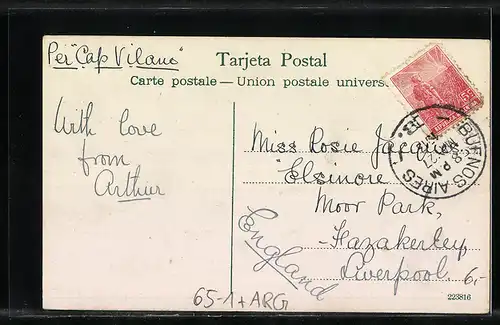 Per "Cap Vilano"
Tarjeta Postal
Carte postale — Union postale univers
With love
from
Arthur
Miss Rosie
"Elsinore"
Moor Park,
Fazakerley,
Liverpool.
England
BUENOS AIRES
8 PM
65-1+ARG
6,-
223816